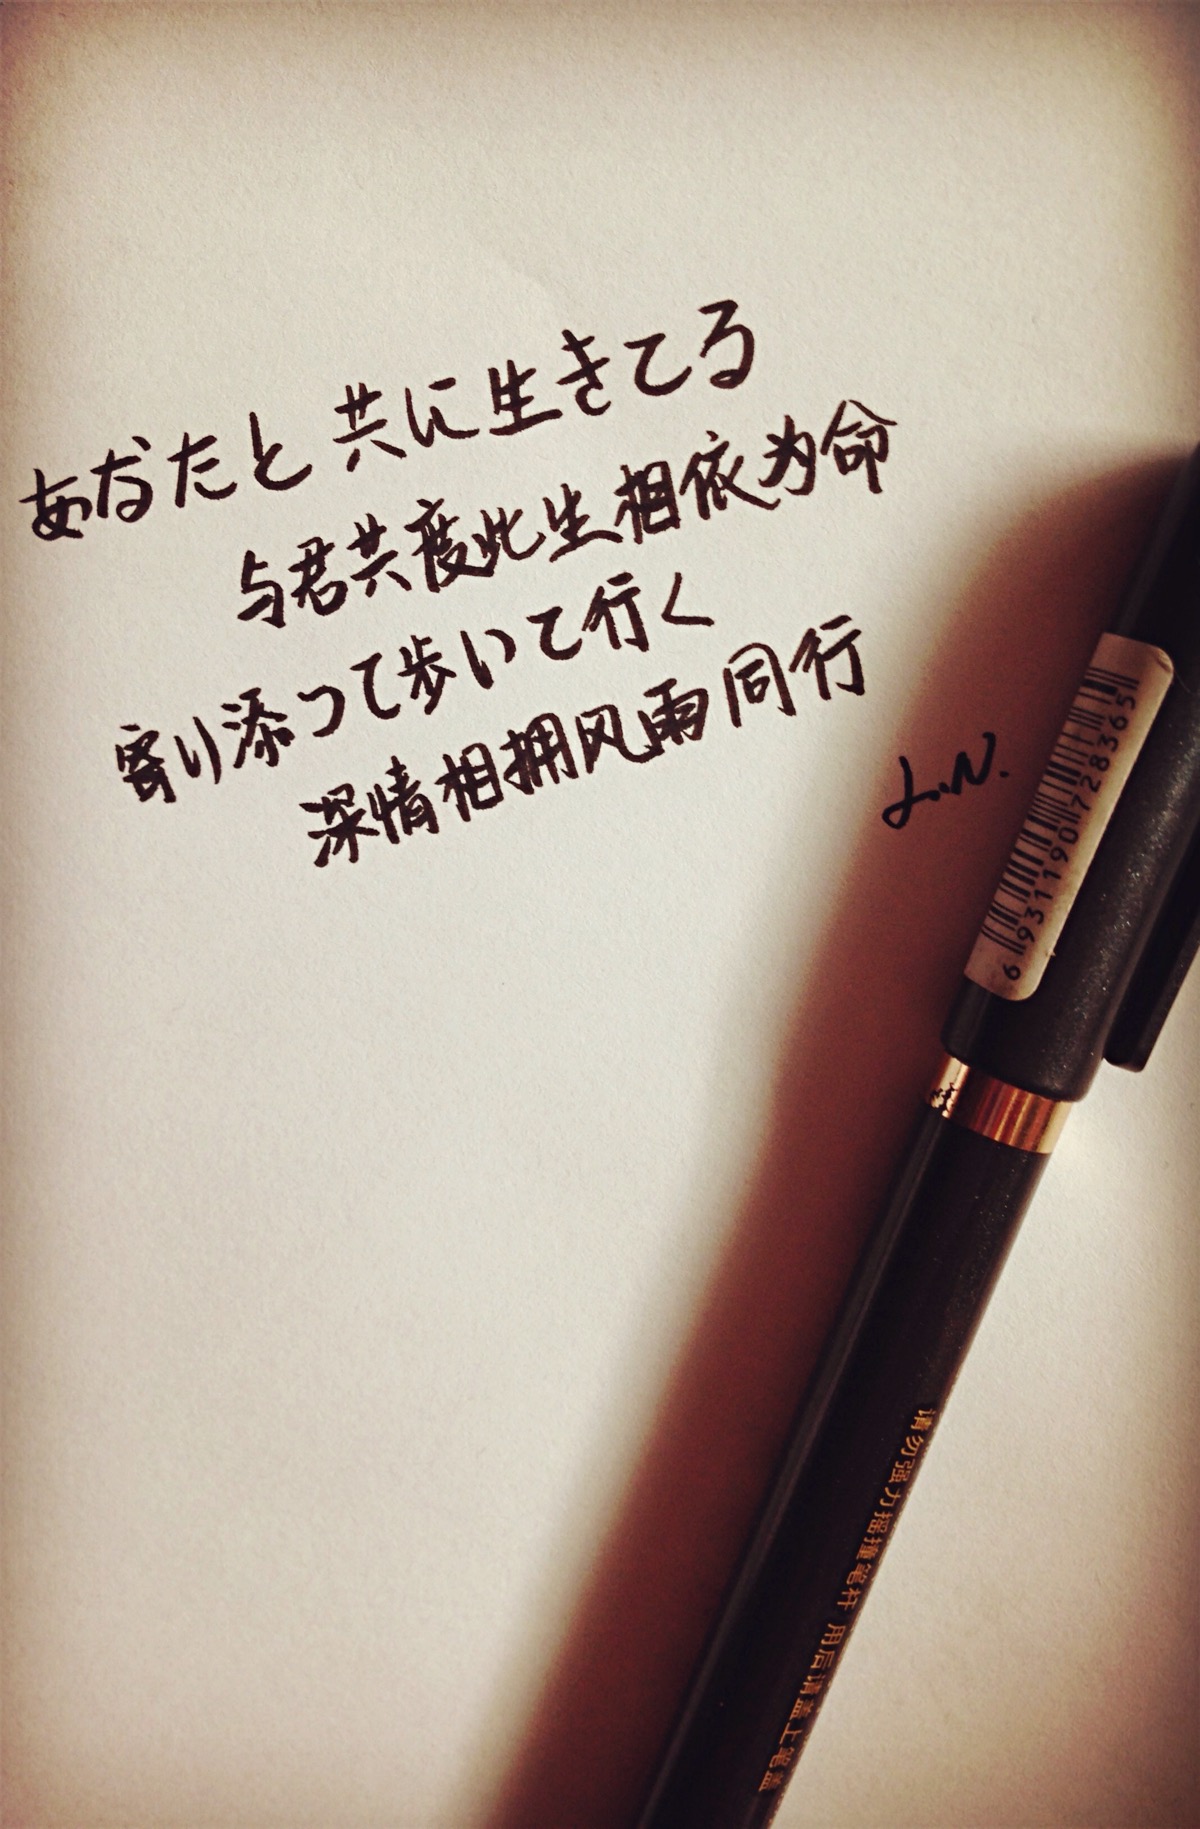 あなたと共に生きてる
与君共度此生相依为命
寄り添って歩いて行く
深情相拥风雨同行
L.N.
6 931190 728365
请勿强力摇撞笔杆 用后请盖上笔盖